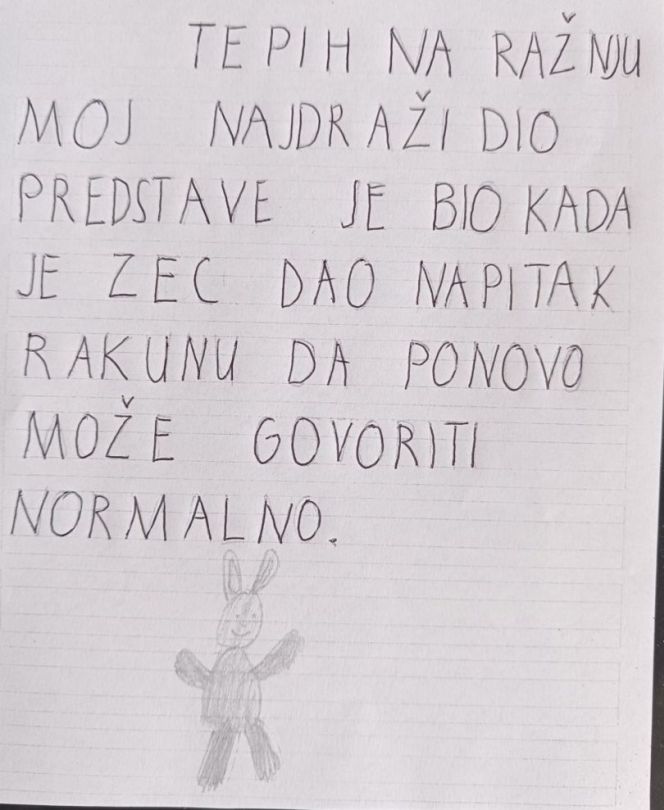 TEPIH NA RAŽNJU
MOJ NAJDRAŽI DIO
PREDSTAVE JE BIO KADA
JE ZEC DAO NAPITAK
RAKUNU DA PONOVO
MOŽE GOVORITI
NORMALNO.